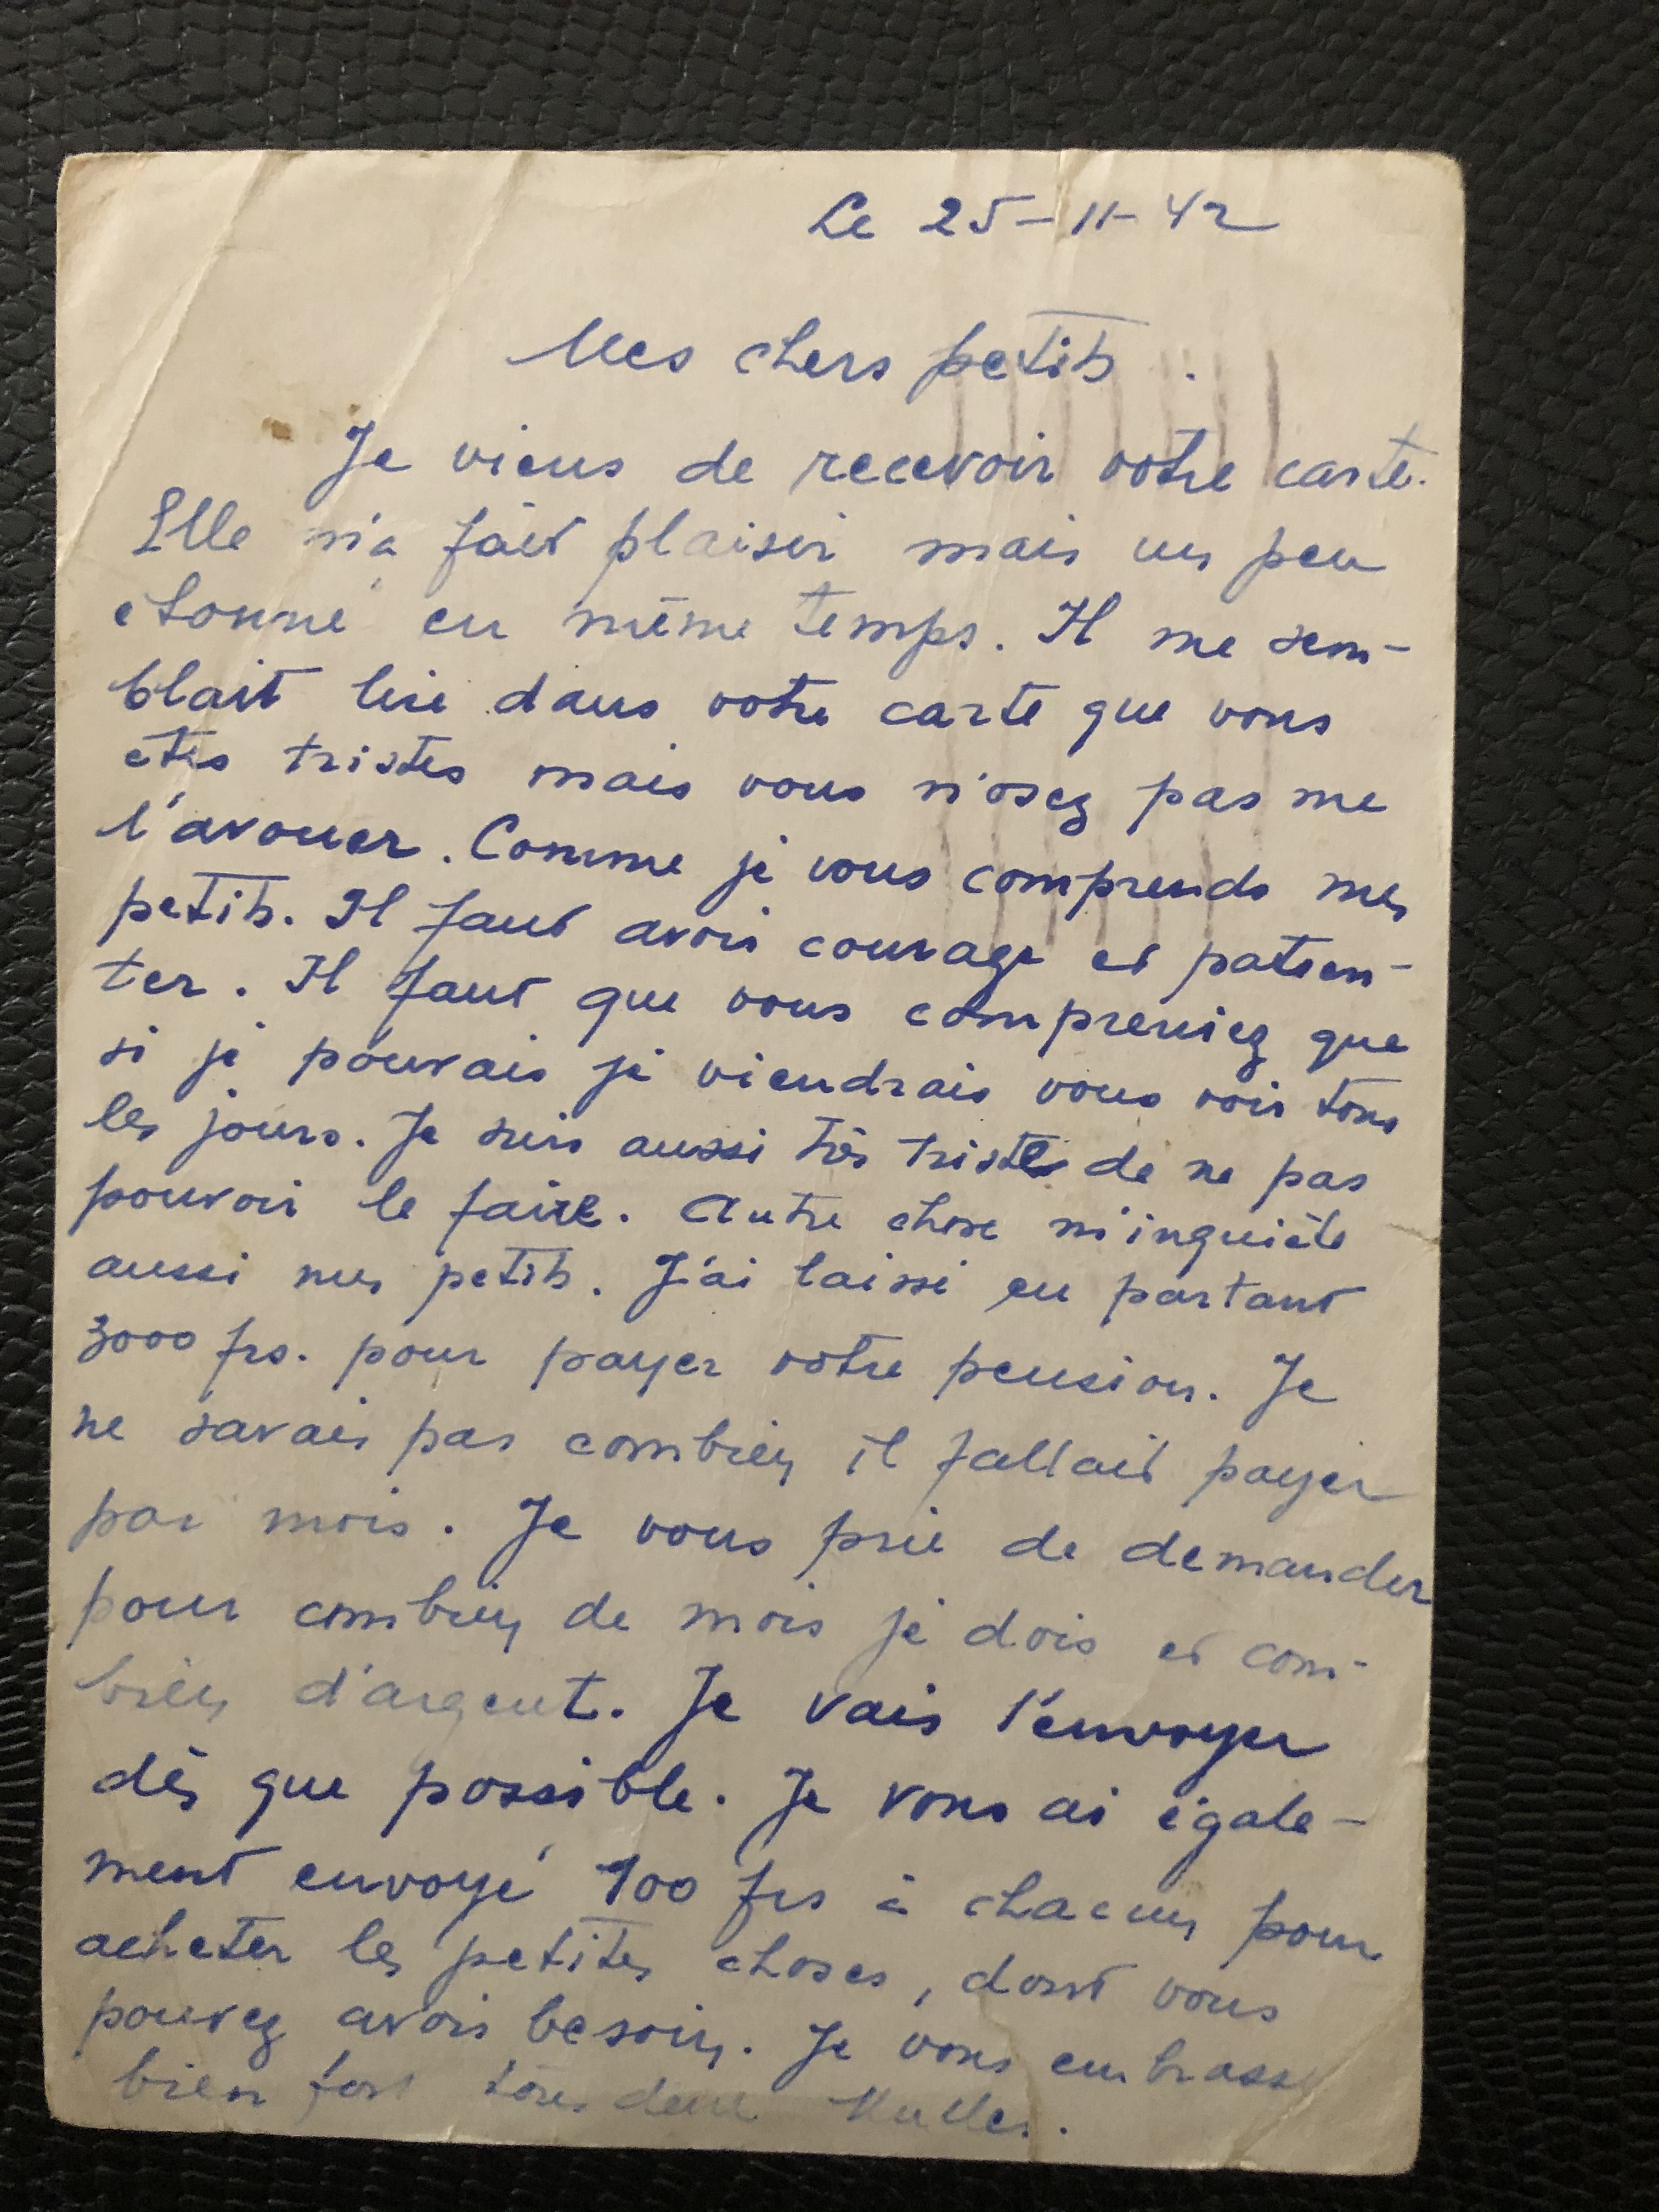 Le 25-11-42
Mes chers petits.
Je viens de recevoir votre carte.
Elle m'a fait plaisir mais un peu
etonné en même temps. Il me sem-
blait lire dans votre carte que vous
etes tristes mais vous n'osez pas me
l'avouer. Comme je vous comprends mes
petits. Il faut avoir courage et patien-
ter. Il faut que vous compreniez que
si je pouvais je viendrais vous voir tous
les jours. Je suis aussi très triste de ne pas
pouvoir le faire. Autre chose m'inquiète
aussi mes petits. J'ai laissé en partant
3000 frs. pour payer votre pension. Je
ne savais pas combien il fallait payer
par mois. Je vous prie de demander
pour combien de mois je dois et com-
bien d'argent. Je vais l'envoyer
dès que possible. Je vous ai égale-
ment envoyé 100 frs à chacun pour
acheter les petites choses, dont vous
pouvez avoir besoin. Je vous embrasse
bien fort tous deux